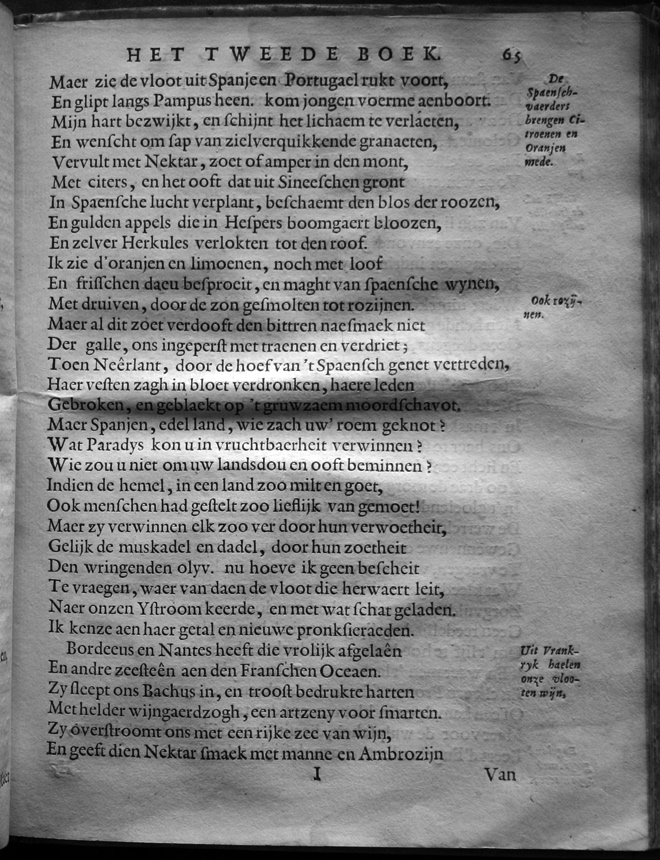 HET TWEEDE BOEK. 65
Maer zie de vloot uit Spanje en Portugael rukt voort,
En glipt langs Pampus heen. kom jongen voerme aenboort.
Mijn hart bezwijkt, en ſchijnt het lichaem te verlaeten,
En wenſcht om ſap van zielverquikkende granaeten,
Vervult met Nektar, zoet of amper in den mont,
Met citers, en het ooft dat uit Sineeſchen gront
In Spaenſche lucht verplant, beſchaemt den blos der roozen,
En gulden appels die in Heſpers boomgaert bloozen,
En zelver Herkules verlokten tot den roof.
Ik zie d'oranjen en limoenen, noch met loof
En friſſchen daeu beſproeit, en maght van ſpaenſche wynen,
Met druiven, door de zon geſmolten tot rozijnen.
Maer al dit zoet verdooft den bittren naeſmaek niet
Der galle, ons ingeperſt met traenen en verdriet;
Toen Neêrlant, door de hoef van 't Spaenſch genet vertreden,
Haer veſten zagh in bloet verdronken, haere leden
Gebroken, en geblaekt op 't gruwzaem moordſchavot.
Maer Spanjen, edel land, wie zach uw' roem geknot?
Wat Paradys kon u in vruchtbaerheit verwinnen?
Wie zou u niet om uw landsdou en ooft beminnen?
Indien de hemel, in een land zoo milt en goet,
Ook menſchen had geſtelt zoo lieflijk van gemoet!
Maer zy verwinnen elk zoo ver door hun verwoetheit,
Gelijk de muskadel en dadel, door hun zoetheit
Den wringenden olyv. nu hoeve ik geen beſcheit
Te vraegen, waer van daen de vloot die herwaert leit,
Naer onzen Yſtroom keerde, en met wat ſchat geladen.
Ik kenze aen haer getal en nieuwe pronkſieraeden.
Bordeeus en Nantes heeft die vrolijk afgelaên
En andre zeeſteên aen den Franſchen Oceaen.
Zy ſleept ons Bachus in, en trooſt bedrukte harten
Met helder wijngaerdzogh, een artzeny voor ſmarten.
Zy overſtroomt ons met een rijke zee van wijn,
En geeft dien Nektar ſmaek met manne en Ambrozijn
I Van
De
Spaenſch-
vaerders
brengen Ci-
troenen en
Oranjen
mede.
Ook rozij-
nen.
Uit Vrank-
ryk haelen
onze vloo-
ten wijn,